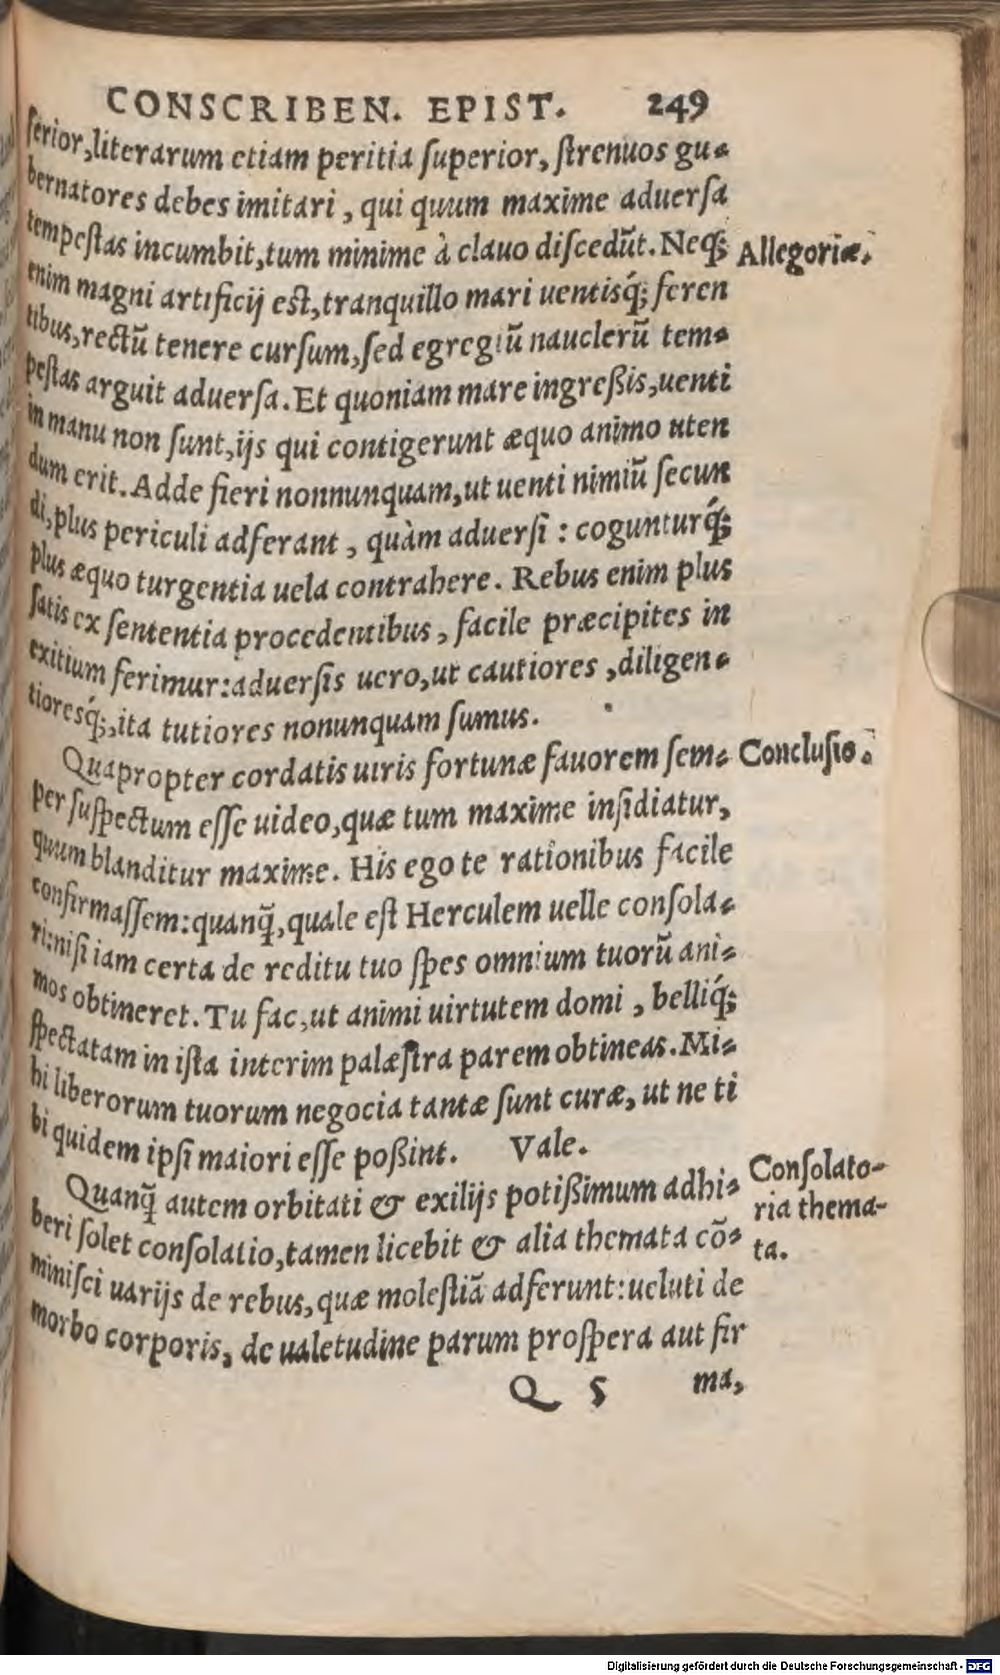 CONSCRIBEN. EPIST. 249
ſerior, literarum etiam peritia ſuperior, ſtrenuos gu⸗
bernatores debes imitari, qui quum maxime aduerſa
tempeſtas incumbit, tum minime à clauo diſcedũt. Neq́;
Allegoriæ.
enim magni artificij eſt, tranquillo mari uentisq́; feren
tibus, rectũ tenere curſum, ſed egregiũ nauclerũ tem⸗
peſtas arguit aduerſa. Et quoniam mare ingreßis, uenti
in manu non ſunt, ijs qui contigerunt æquo animo uten
dum erit. Adde fieri nonnunquam, ut uenti nimiũ ſecun
di, plus periculi adferant, quàm aduerſi: cogunturq́;
plus æquo turgentia uela contrahere. Rebus enim plus
ſatis ex ſententia procedentibus, facile præcipites in
exitium ferimur: aduerſis uero, ut cautiores, diligen⸗
tioresq́;, ita tutiores nonunquam ſumus.
Quapropter cordatis uiris fortunæ fauorem ſem⸗
Concluſio.
per ſuſpectum eſſe uideo, quæ tum maxime inſidiatur,
quum blanditur maxime. His ego te rationibus facile
confirmaſſem: quanq̃, quale eſt Herculem uelle conſola⸗
ri: niſi iam certa de reditu tuo ſpes omnium tuorũ ani⸗
mos obtineret. Tu fac, ut animi uirtutem domi, belliq́;
ſpectatam in iſta interim palæſtra parem obtineas. Mi⸗
hi liberorum tuorum negocia tantæ ſunt curæ, ut ne ti
bi quidem ipſi maiori eſſe poßint. Vale.
Quanq̃ autem orbitati & exilijs potißimum adhi⸗
Conſolato-
ria thema-
ta.
beri ſolet conſolatio, tamen licebit & alia themata cõ⸗
miniſci uarijs de rebus, quæ moleſtiã adferunt: ueluti de
morbo corporis, de ualetudine parum proſpera aut fir
Q 5 ma,
Digitalisierung gefördert durch die Deutsche Forschungsgemeinschaft - DFG